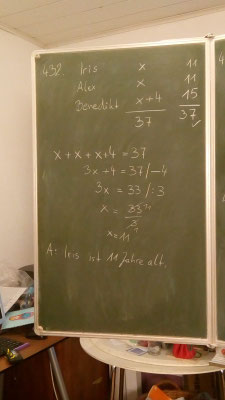 432. Iris x 11
Alex x 11
Benedikt x+4 15
37 37 ✓
x+x+x+4=37
3x+4=37/-4
3x=33/:3
x=33/3
x=11
A: Iris ist 11 Jahre alt.